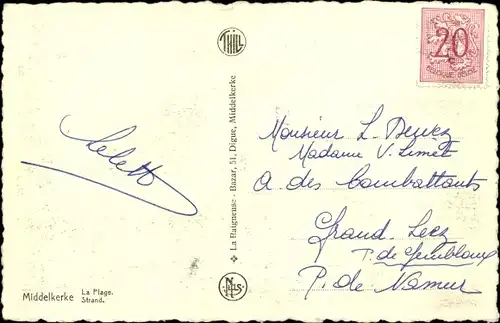 THILL
20
c
BELGIQUE-BELGIË
Monsieur L. Dewez
Madame V. Limet
A. des Combattants
Grand-Leez
P. de Gembloux
P. de Namur
La Baigneuse - Bazar, 51, Digue, Middelkerke
NELS
Middelkerke
La Plage.
Strand.